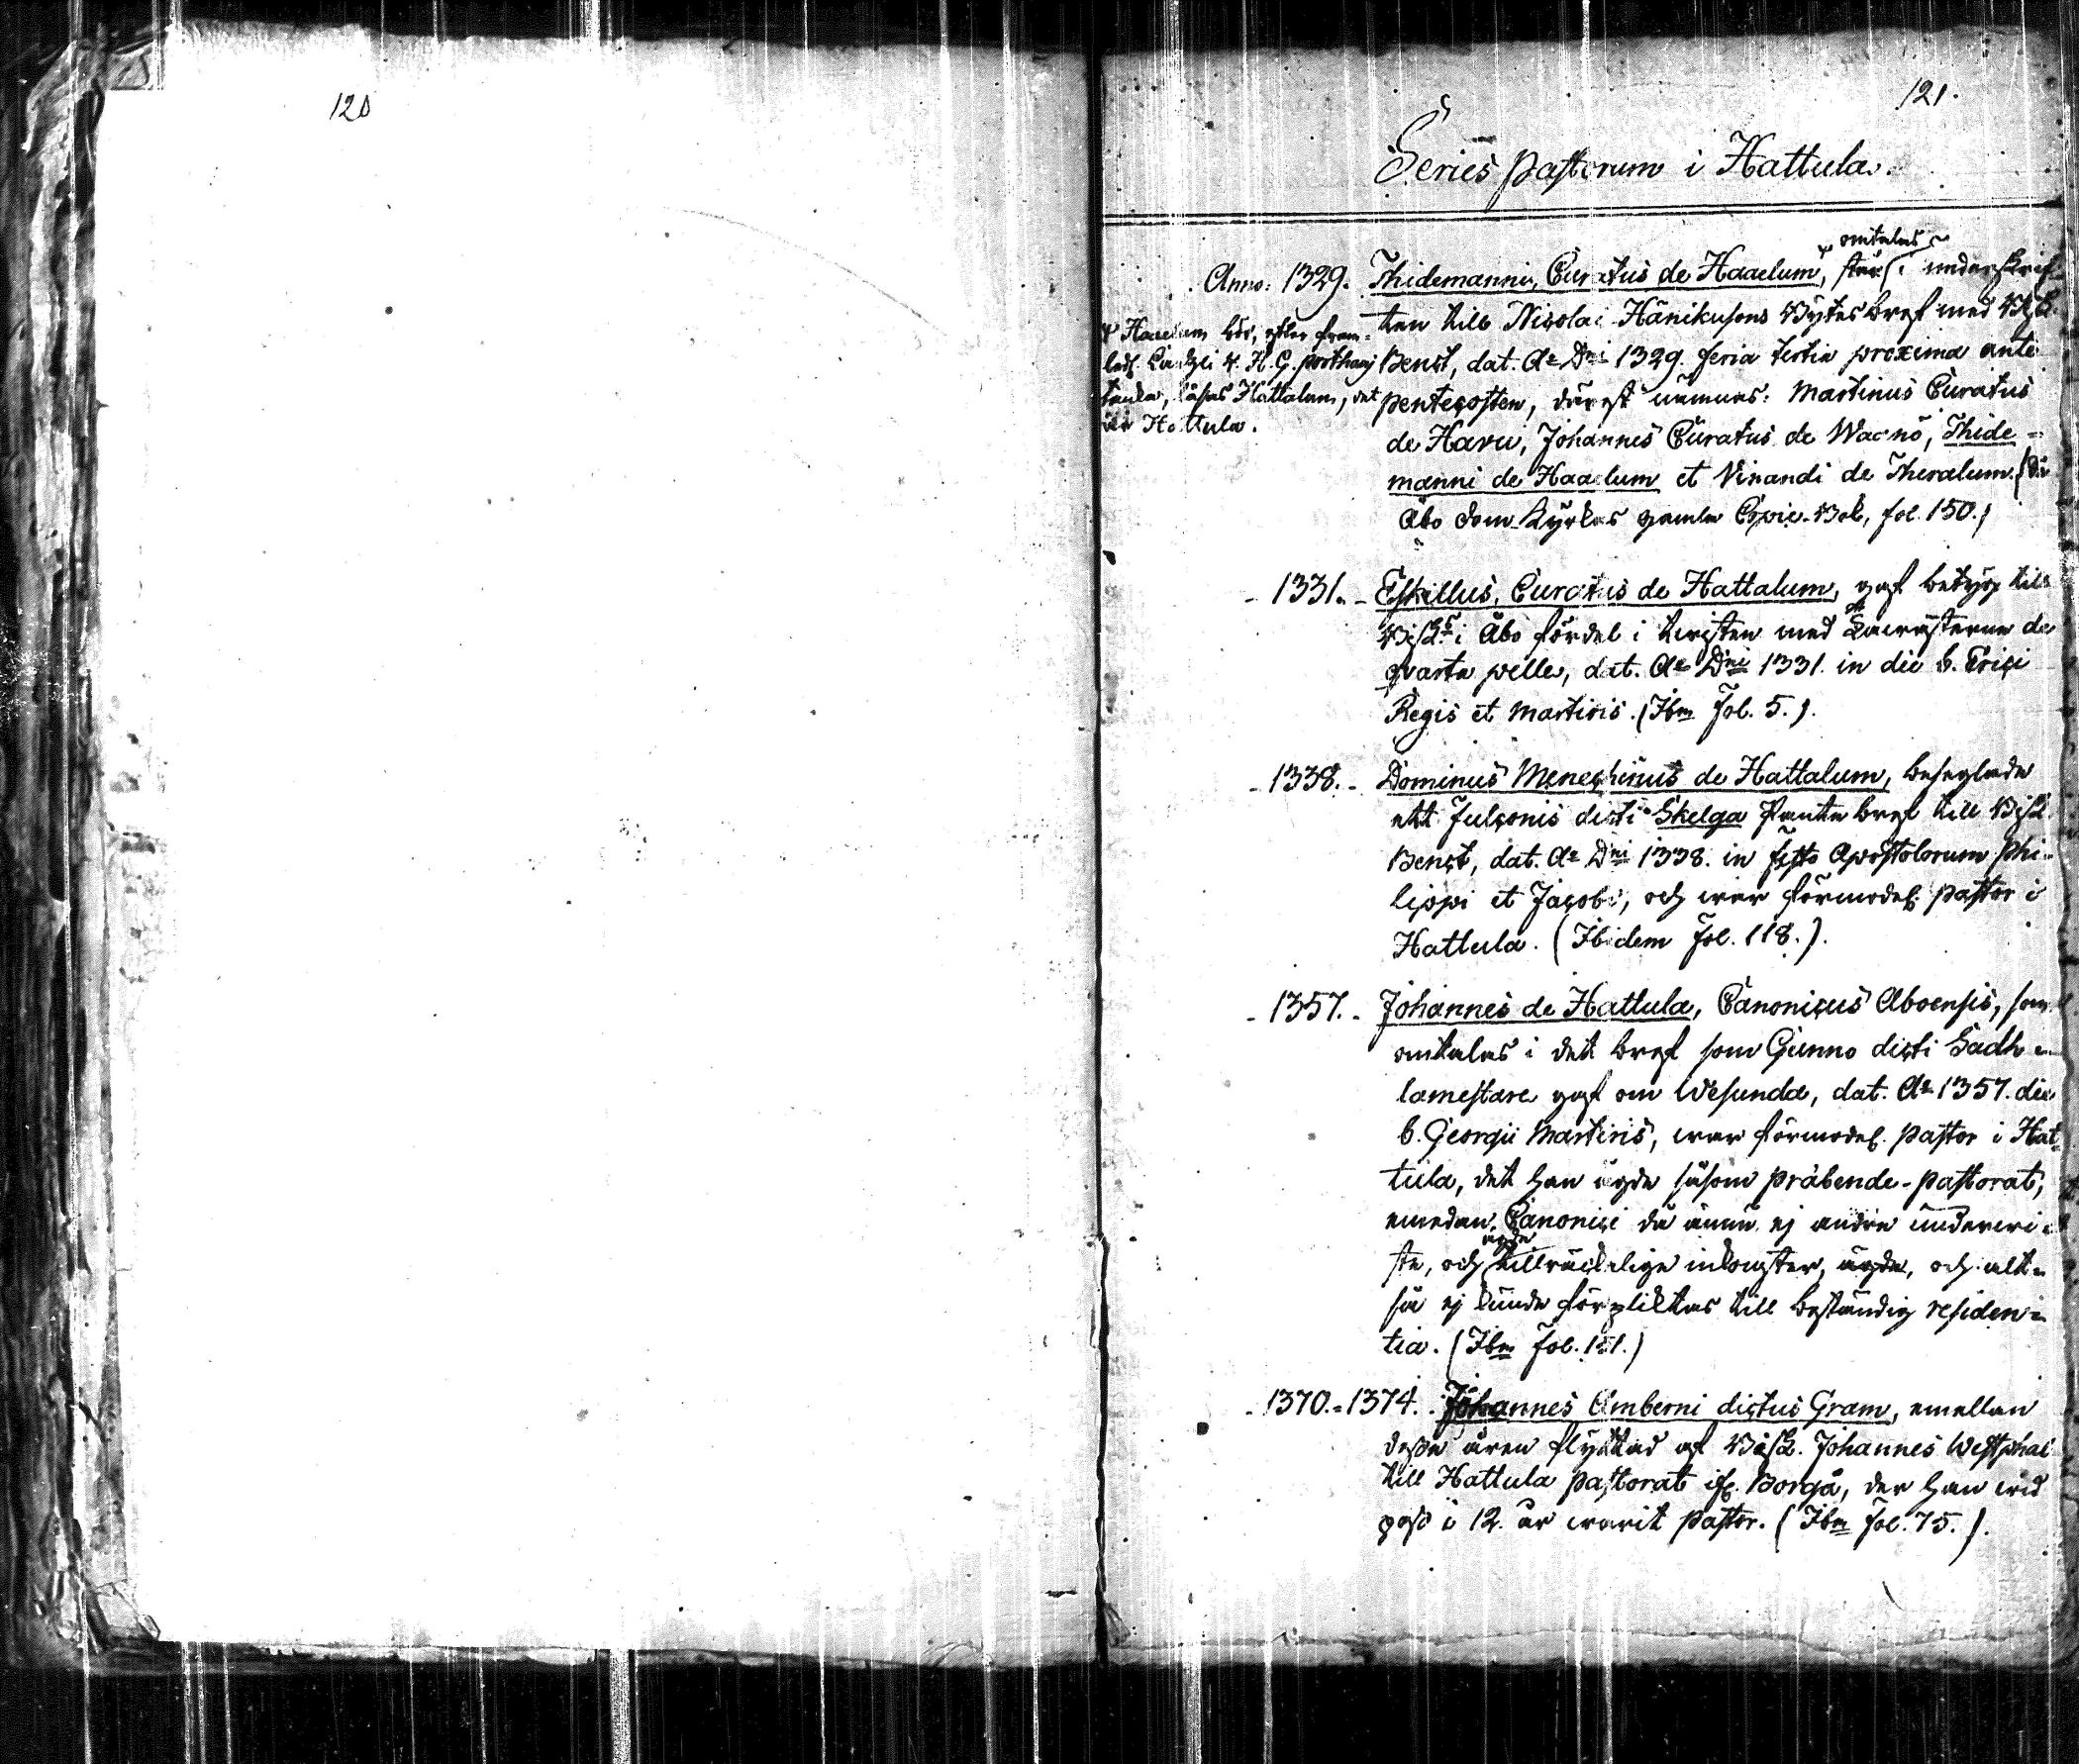 120
121.
Series Pastorum i Hattula.
omtales
Anno. 1329. Thidemanni, Curatus de Haaelum, står i underskrif-
ten till Nicolai Hänikusons Bytes bref med Bisk.
Benct, dat. Ao Dni 1329. feria tertia proxima ante
Pentecosten, därest nämnes: Martinus Curatus
de Haru, Johannes Curatus de Wacno, Thide-
manni de Haaelum et Vinandi de Theralum. (Vid
Åbo Dom-Kyrkas gamla Copie-Bok, fol. 150.)
Haaelum bör, efter fram-
led. Cantzli R. H. G. Porthans
tanke, läsas Hattalum, det
är Hattula.
- 1331. - Eskillus, Curatus de Hattalum, gaf betyg till
Biskps i Åbo fördel i twisten med Sacrasterne de
qvarta pelle, dat. Ao Dni 1331. in die b. Erici
Regis et Martiris. (Ibm Fol. 5.).
- 1338. - Dominus Menechinus de Hattalum, beseglade
ett Fulconis dicti Skelga Pante bref till Bisk.
Benct, dat. Ao Dni 1338. in festo Apostolorum Phi-
lippi et Jacobi, och war förmodel. Pastor i
Hattula. (Ibidem Fol. 118.).
- 1357. - Johannes de Hattula, Canonicus Aboensis, som
omtalas i det bref som Gunno dicti Sadh-
lamestare gaf om Wesunda, dat. Ao 1357. die
b. Georgii Martiris, war förmodel. Pastor i Hat-
tula, det han ägde såsom Præbende-Pastorat,
emedan Canonici då ännu ej andre underwi-
ägde
ste, och tillräckelige inkomster, ägde, och alt-
så ej kunde förpliktas till beständig residen-
tia. (Ibm Fol. 151.)
- 1370.-1374. Johannes Amberni dictus Gram, emellan
desse åren flyttad af Bisk. Johannes Westphal
till Hattula Pastorat ifr. Borgå, der han wid
pass i 12. år warit Pastor. (Ibm Fol. 75.).